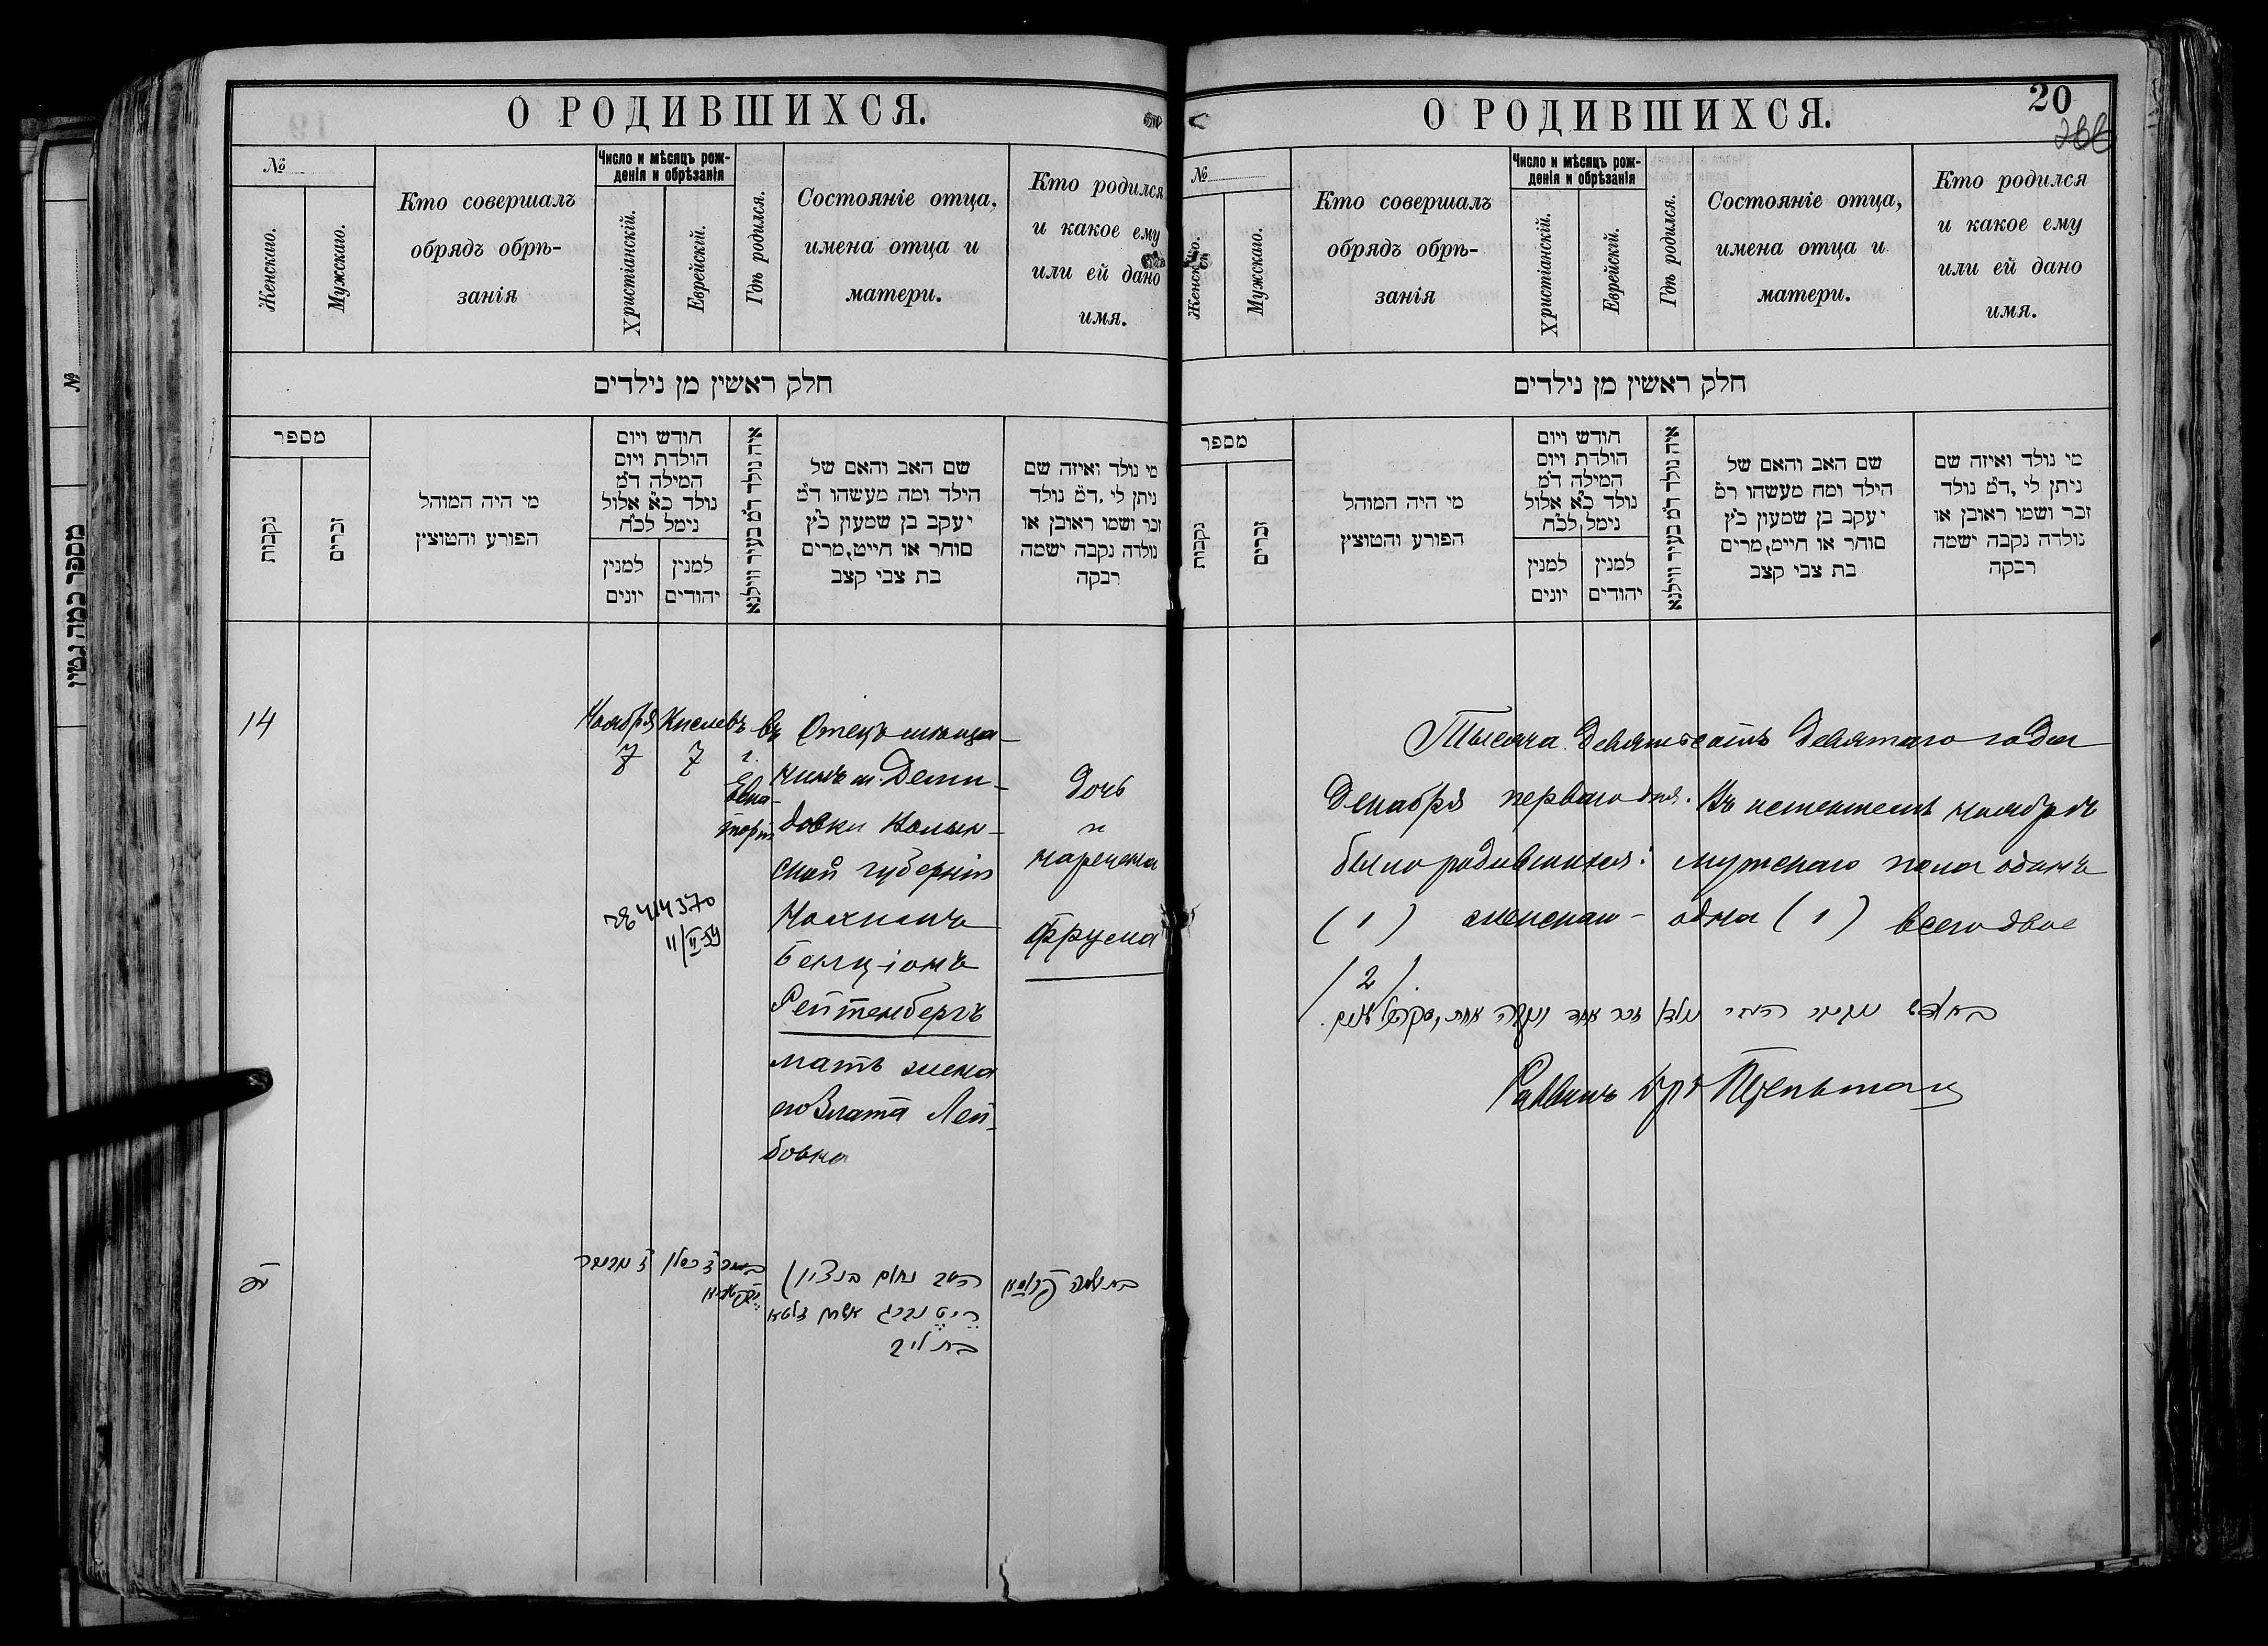 О РОДИВШИХСЯ.
№
Женскаго.
Мужскаго.
Кто совершалъ
обрядъ обрѣ-
занія
Число и мѣсяцъ рож-
денія и обрѣзанія
Христіанскій.
Еврейскій.
Гдѣ родился.
Состояніе отца,
имена отца и
матери.
Кто родился
и какое ему
или ей дано
имя.
חלק ראשין מן נילדים
מספר
נקבות
זכרים
מי היה המוהל
הפורע והמוצץ
חודש ויום
הולדת ויום
המילה ד״מ
נולד כ״א אלול
נימל לכ״ח
למנין
יונים
למנין
יהודים
איה נולד ד״מ בעיר ווילנא
שם האב והאם של
הילד ומה מעשהו ד״מ
יעקב בן שמעון כ״ץ
סוחר או חייט, מרים
בת צבי קצב
מי נולד ואיזה שם
ניתן לי, ד״מ נולד
זכר ושמו ראובן או
נולדה נקבה ישמה
רבקה
14
Ноября
7
Кислевъ
7
въ
г.
Евпа-
торіи
Отецъ мѣща-
нинъ м. Деми-
довки Волын-
ской губерніи
Нахманъ
Бенціонъ
Рейтенбергъ
мать жена
его Злата Лей-
бовна
Дочь
и
наречена
Фрума
414370
11/II-59
ז׳ כסלו
בת לייב
О РОДИВШИХСЯ.
20
266
№
Женскаго.
Мужскаго.
Кто совершалъ
обрядъ обрѣ-
занія
Число и мѣсяцъ рож-
денія и обрѣзанія
Христіанскій.
Еврейскій.
Гдѣ родился.
Состояніе отца,
имена отца и
матери.
Кто родился
и какое ему
или ей дано
имя.
חלק ראשין מן נילדים
מספר
נקבות
זכרים
מי היה המוהל
הפורע והמוצץ
חודש ויום
הולדת ויום
המילה ד״מ
נולד כ״א אלול
נימל לכ״ח
למנין
יונים
למנין
יהודים
איה נולד ד״מ בעיר ווילנא
שם האב והאם של
הילד ומח מעשהו ד״מ
יעקב בן שמעון כ״ץ
סוחר או חייט, מרים
בת צבי קצב
מי נולד ואיזה שם
ניתן לי, ד״מ נולד
זכר ושמו ראובן או
נולדה נקבה ישמה
רבקה
Тысяча девятьсотъ девятаго года
Декабря перваго дня. Въ истекшемъ ноябрѣ
было родившихся: мужскаго пола одинъ
(1) женскаго - одна (1) всего двое
(2).
Раввинъ
№
מספר כמה גטין